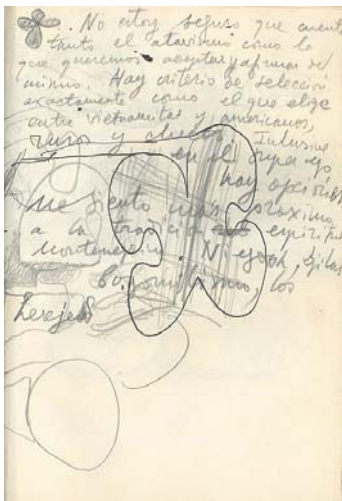 . No estoy seguro que cuente
tanto el atavismo como lo
que queremos aceptar y afirmar del
mismo. Hay criterio de selección
exactamente como el que elige
entre vietnamitas y americanos,
rusos y checos. Inclusive
en el super ego
hay opciones
me siento más próximo
a la tradición espiritual
montenegrina. Njegosh,
bogomilismo, los
herejes